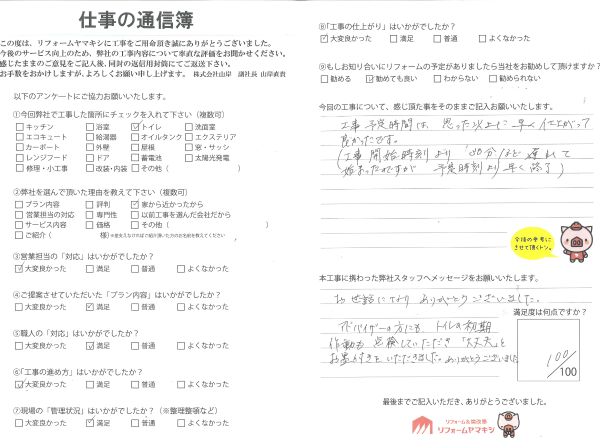 仕事の通信簿
この度は、リフォームヤマキシに工事をご用命頂き誠にありがとうございました。
今後のサービス向上のため、弊社の工事内容について率直な評価をお聞かせください。
感じたままのご意見をご記入後、同封の返信用封筒にてご返送下さい。
お手数をおかけしますが、よろしくお願い申し上げます。 株式会社山岸 副社長 山岸直貴
以下のアンケートにご協力お願いいたします。
①今回弊社で工事した箇所にチェックを入れて下さい(複数可)
□キッチン □浴室 ☑トイレ □洗面室
□エコキュート □給湯器 □オイルタンク □エクステリア
□カーポート □外壁 □屋根 □窓・サッシ
□レンジフード □ドア □蓄電池 □太陽光発電
□修理・小工事 □改装・内装 □その他( )
②弊社を選んで頂いた理由を教えて下さい(複数可)
□プラン内容 □評判 ☑家から近かったから
□営業担当の対応 □専門性 □以前工事を選んだ会社だから
□サービス内容 □価格 □その他( )
□ご紹介( 様)※差支えなければご紹介頂いた方のお名前を教えてください
③営業担当の「対応」はいかがでしたか?
☑大変良かった □満足 □普通 □よくなかった
④ご提案させていただいた「プラン内容」はいかがでしたか?
□大変良かった ☑満足 □普通 □よくなかった
⑤職人の「対応」はいかがでしたか?
□大変良かった ☑満足 □普通 □よくなかった
⑥「工事の進め方」はいかがでしたか?
☑大変良かった □満足 □普通 □よくなかった
⑦現場の「管理状況」はいかがでしたか?(※整理整頓など)
□大変良かった ☑満足 □普通 □よくなかった
⑧「工事の仕上がり」はいかがでしたか?
☑大変良かった □満足 □普通 □よくなかった
⑨もしお知り合いにリフォームの予定がありましたら当社をお勧めして頂けますか?
□勧める ☑勧めても良い □わからない □勧められない
今回の工事について、感じ頂た事をそのままご記入お願いいたします。
工事予定時間は、思った以上に早く仕上がって
良かったです。
(工事開始時刻より 30分ほど遅れて
始まったのですが 予定時刻より早く終了)
今後の参考に
させて頂くトン。
本工事に携わった弊社スタッフへメッセージをお願いいたします。
お世話になり ありがとうございました。
アドバイザーの方にも トイレの初期
作動も 点検していただき 「大丈夫」と
お墨付きを いただきました。ありがとうございました
満足度は何点ですか?
100
/100
最後までご記入いただき、ありがとうございました。
リフォーム&増改築
リフォームヤマキシ